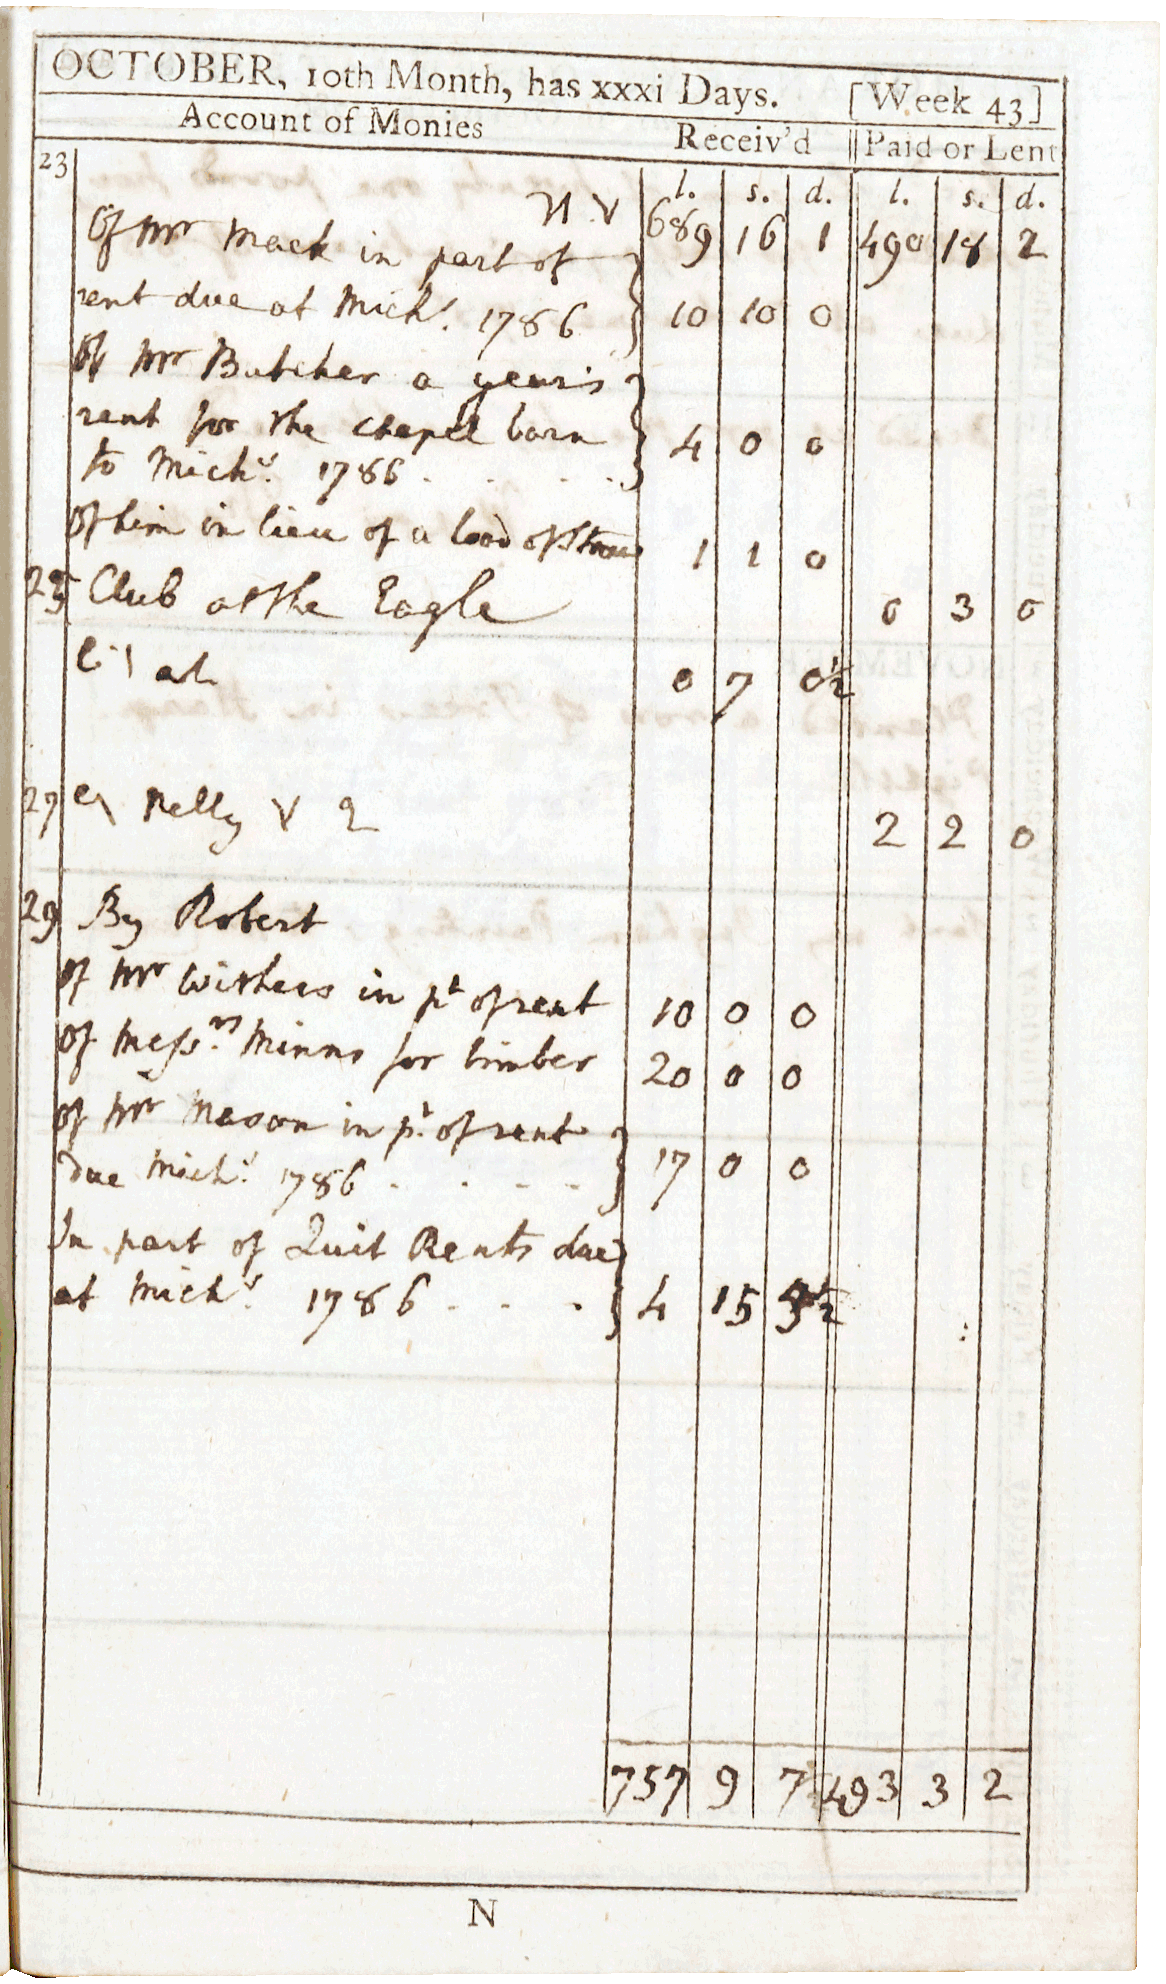 OCTOBER, 10th Month, has xxxi Days. [Week 43]
Account of Monies Receiv'd Paid or Lent
23 l. s. d. l. s. d.
689 16 1 490 18 2
Of Mr Mack in part of
rent due at Mich.s 1786 10 10 0
Of Mr Butcher a year's
rent for the chapel barn 4 0 0
to Mich.s 1786 . . . .
Of him in lieu of a load of Straw 1 1 0
25 Club at the Eagle 0 3 0
at 0 7 0½
27 Nelly 2 2 0
29 By Robert
Of Mr Withers in pt of rent 10 0 0
Of Mess.rs Minns for timber 20 0 0
Of Mr Mason in pt. of rent
due Mich.s 1786 . . . . 17 0 0
In part of Quit Rents due
at Mich.s 1786 . . . 4 15 5½
757 9 7 493 3 2
N